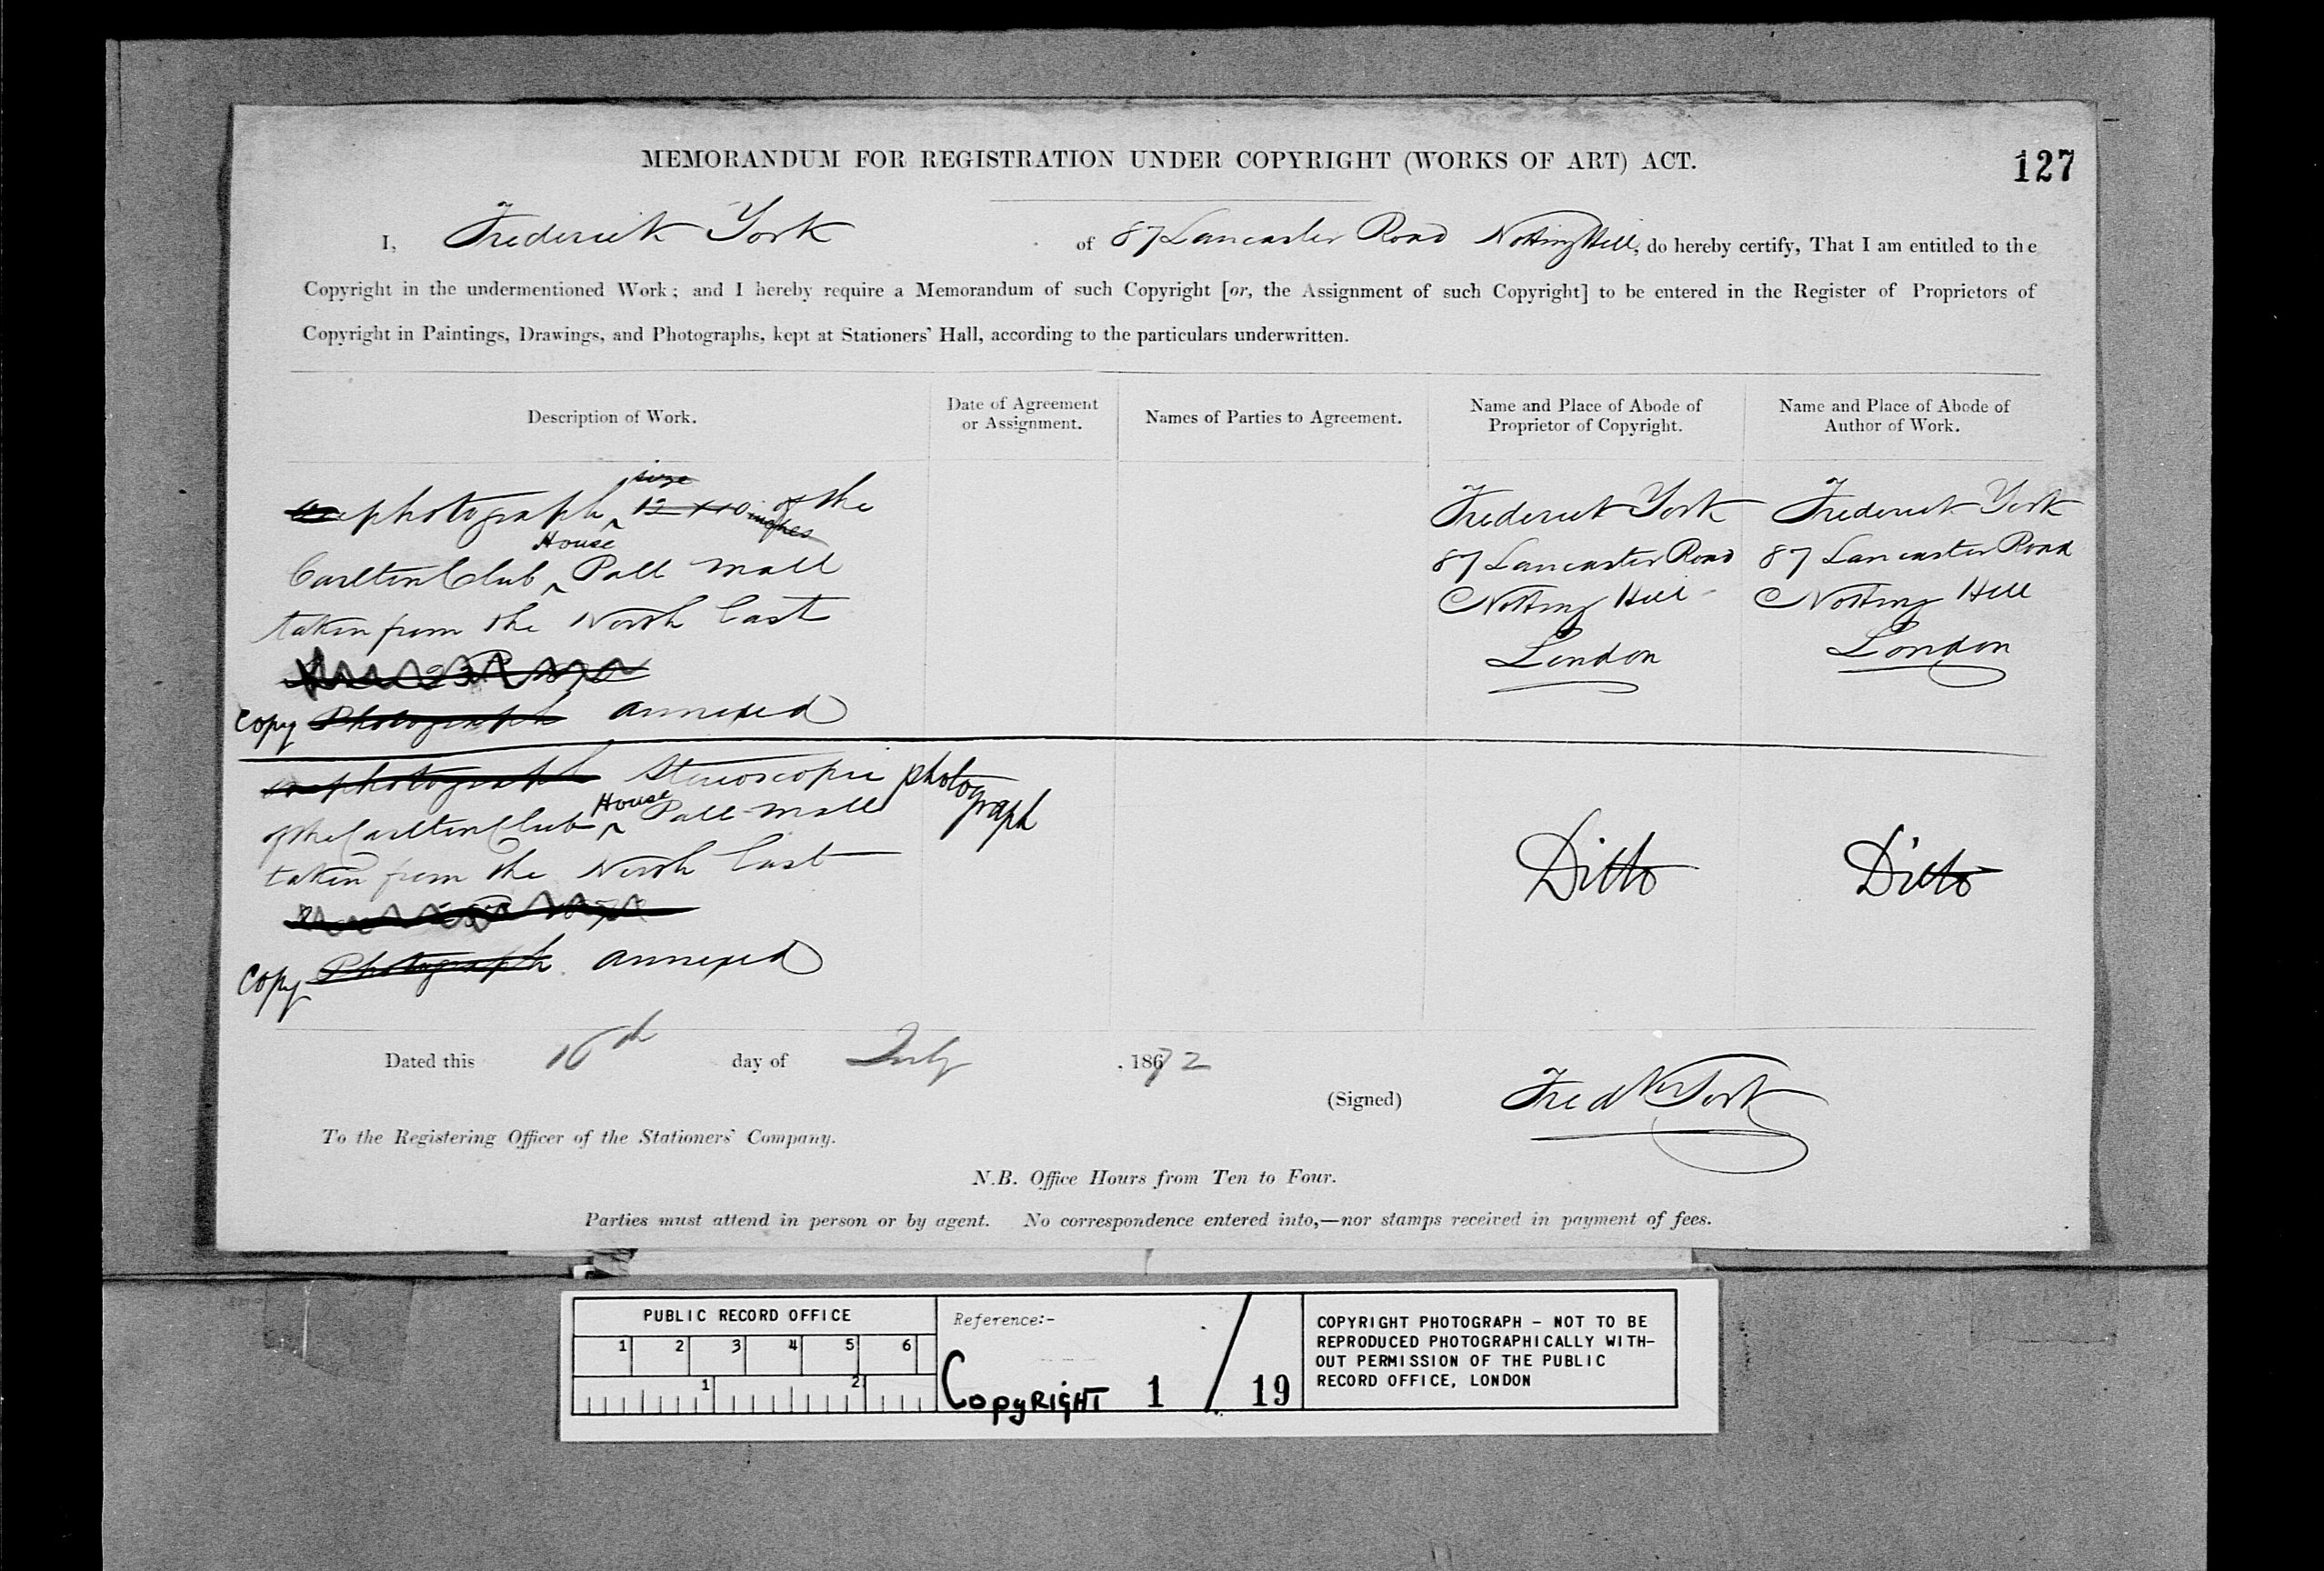 MEMORANDUM FOR REGISTRATION UNDER COPYRIGHT (WORKS OF ART) ACT.
127
I, Frederick York of 87 Lancaster Road Notting Hill, do hereby certify, That I am entitled to the
Copyright in the undermentioned Work; and I hereby require a Memorandum of such Copyright [or, the Assignment of such Copyright] to be entered in the Register of Proprietors of
Copyright in Paintings, Drawings, and Photographs, kept at Stationers' Hall, according to the particulars underwritten.
Description of Work.
Date of Agreement
or Assignment.
Names of Parties to Agreement.
Name and Place of Abode of
Proprietor of Copyright.
Name and Place of Abode of
Author of Work.
size
photograph 12 x 10 inches of the
House
Carlton Club Pall Mall
taken from the North East
Copy Photograph annexed
Frederick York
87 Lancaster Road
Notting Hill
London
Frederick York
87 Lancaster Road
Notting Hill
London
photograph Stereoscopic photo
graph
House
of the Carlton Club Pall Mall
taken from the North East
Copy Photograph annexed
Ditto
Ditto
Dated this 10th day of July, 1872
(Signed) Fredk York
To the Registering Officer of the Stationers' Company.
N.B. Office Hours from Ten to Four.
Parties must attend in person or by agent. No correspondence entered into,—nor stamps received in payment of fees.
PUBLIC RECORD OFFICE
1 2 3 4 5 6
1 2
Reference:-
COPYRIGHT 1 / 19
COPYRIGHT PHOTOGRAPH - NOT TO BE
REPRODUCED PHOTOGRAPHICALLY WITH-
OUT PERMISSION OF THE PUBLIC
RECORD OFFICE, LONDON